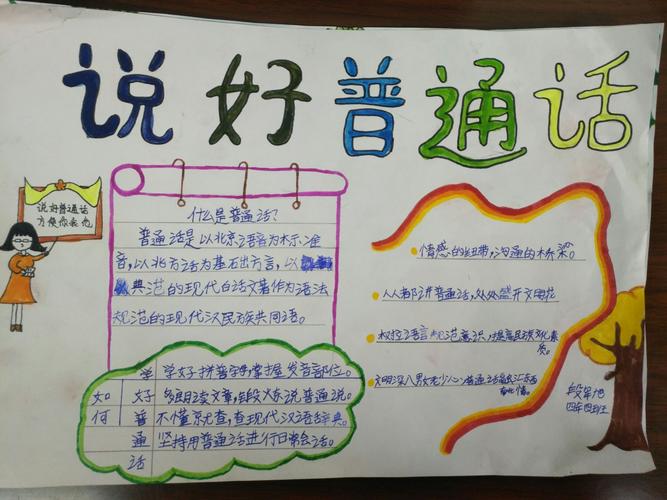 说好普通话
说好普通话
方便你我他
什么是普通话?
普通话是以北京语音为标准
音,以北方话为基础方言,以
典范的现代白话文著作为语法
规范的现代汉民族共同语。
如何
学好普通话
学好拼音字母掌握发音部位。
多朗读文章,锻炼说普通话。
不懂就查,查现代汉语辞典。
坚持用普通话进行日常会话。
情感的纽带,沟通的桥梁。
人人都讲普通话,处处盛开文明花
树立语言规范意识,提高民族文化素
质。
文明深入男女老少心,普通话
四年四班